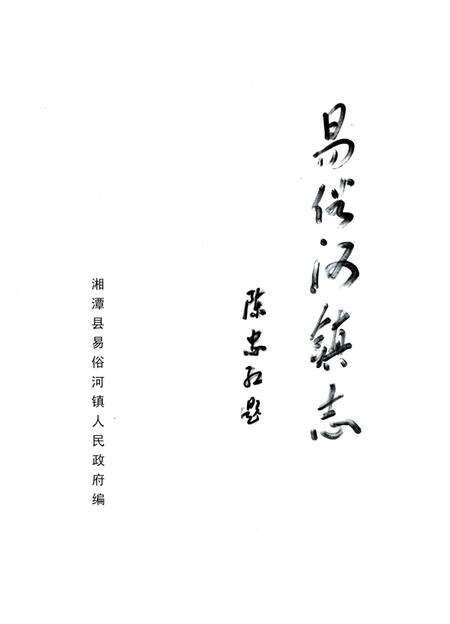 易俗河镇志
陈忠红题
湘潭县易俗河镇人民政府编